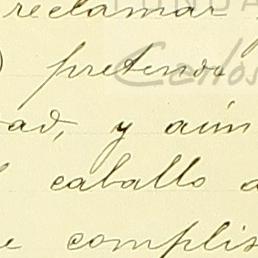 reclamar
) pretende
ad, y aún
caballo a
e complis